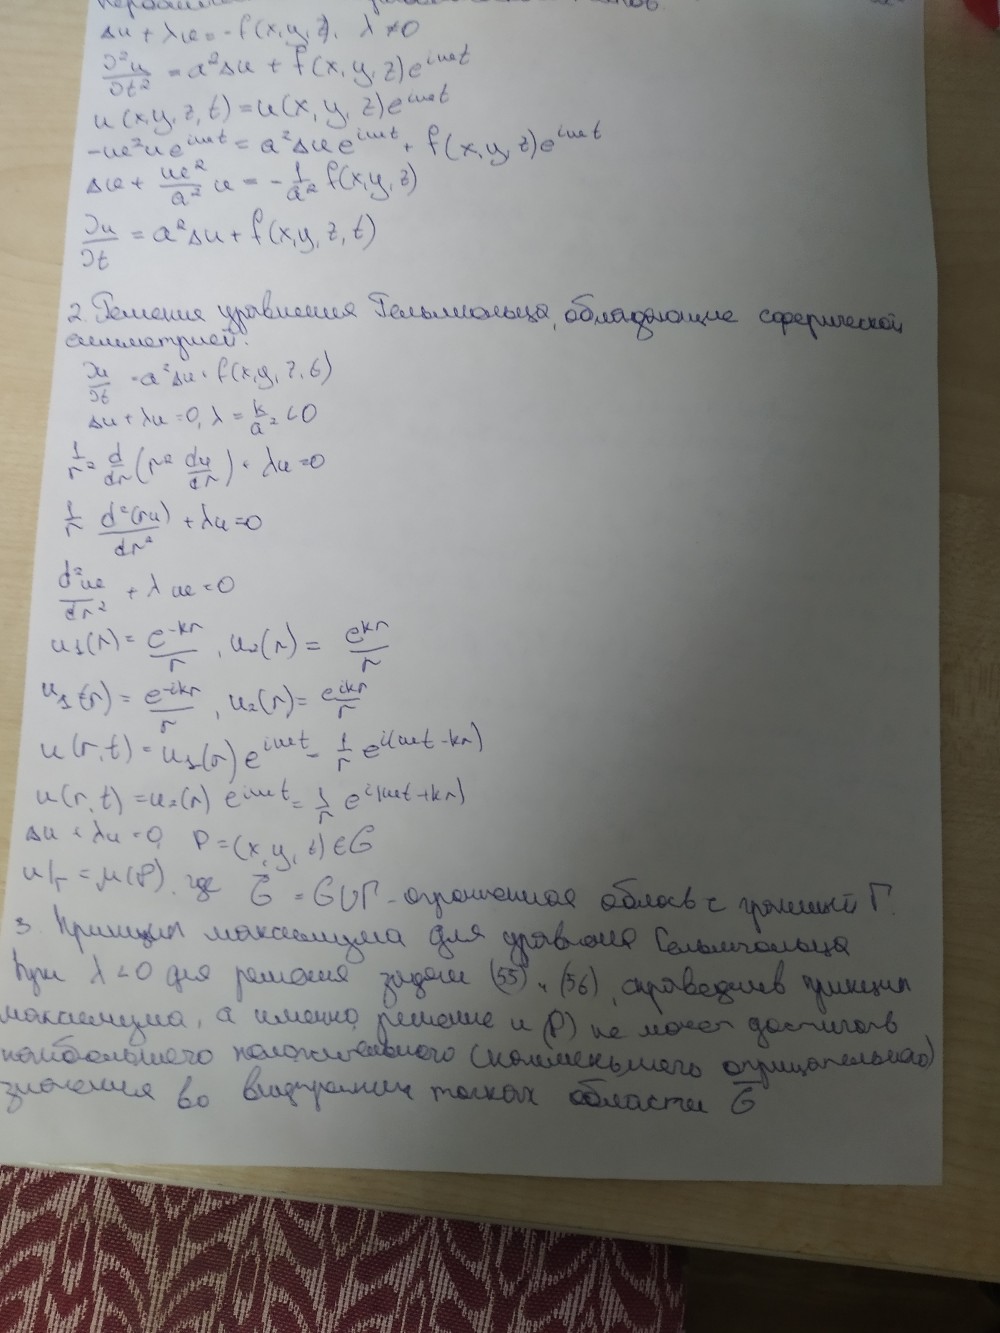 Δu + λu = -f(x,y,z), λ ≠ 0
∂²u/∂t² = a²Δu + f(x,y,z)e^{iωt}
u(x,y,z,t) = u(x,y,z)e^{iωt}
-ω²ue^{iωt} = a²Δue^{iωt} + f(x,y,z)e^{iωt}
Δu + ω²/a² u = -1/a² f(x,y,z)
∂u/∂t = a²Δu + f(x,y,z,t)
2. Решения уравнения Гельмгольца, обладающие сферической
симметрией.
∂u/∂t = a²Δu + f(x,y,z,t)
Δu + λu = 0, λ = k/a² < 0
1/r² d/dr (r² du/dr) + λu = 0
1/r d²(ru)/dr² + λu = 0
d²ω/dr² + λω = 0
u₁(r) = e^{-kr}/r, u₂(r) = e^{kr}/r
u₁(r) = e^{-ikr}/r, u₂(r) = e^{ikr}/r
u(r,t) = u₁(r)e^{iωt} = 1/r e^{i(ωt-kr)}
u(r,t) = u₂(r) e^{iωt} = 1/r e^{i(ωt+kr)}
Δu + λu = 0, P = (x,y,t) ∈ G
u|_Γ = μ(P), где G̅ = G∪Γ - ограниченная область с границей Γ.
3. Принцип максимума для уравнения Гельмгольца
При λ < 0 для решения задачи (55), (56), справедлив принцип
максимума, а именно, решение u(P) не может достигать
наибольшего положительного (наименьшего отрицательного)
значения во внутренних точках области G̅